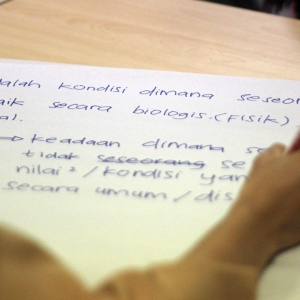 kondisi dimana
secara biologis. (Fisik)
→ Keadaan dimana
tidak seseorang se
nilai² / kondisi
secara umum /